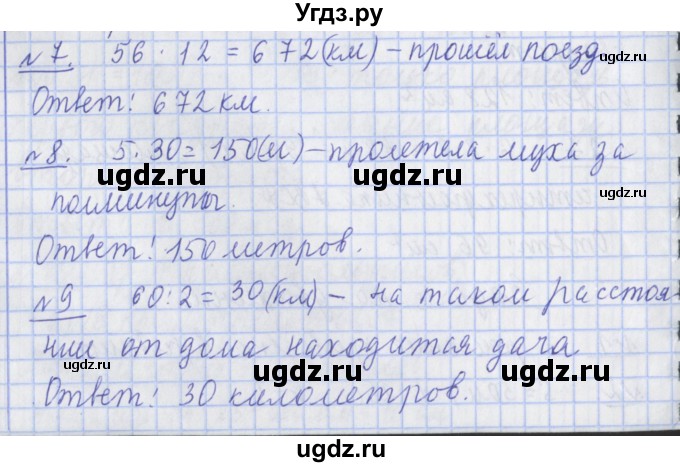 Угдз.ру
№7. 56 · 12 = 672(км) – прошёл поезд.
Ответ: 672 км.
№8. 5 · 30 = 150(м) – пролетела муха за
ugdz.ru ugdz.ru
полминуты.
ugdz.ru
Ответ: 150 метров.
ugdz.ru ugdz.ru
№9 60 : 2 = 30(км) – на таком расстоя-
ugdz.ru
нии от дома находится дача
ugdz.ru ugdz.ru
Ответ: 30 километров.
ugdz.ru